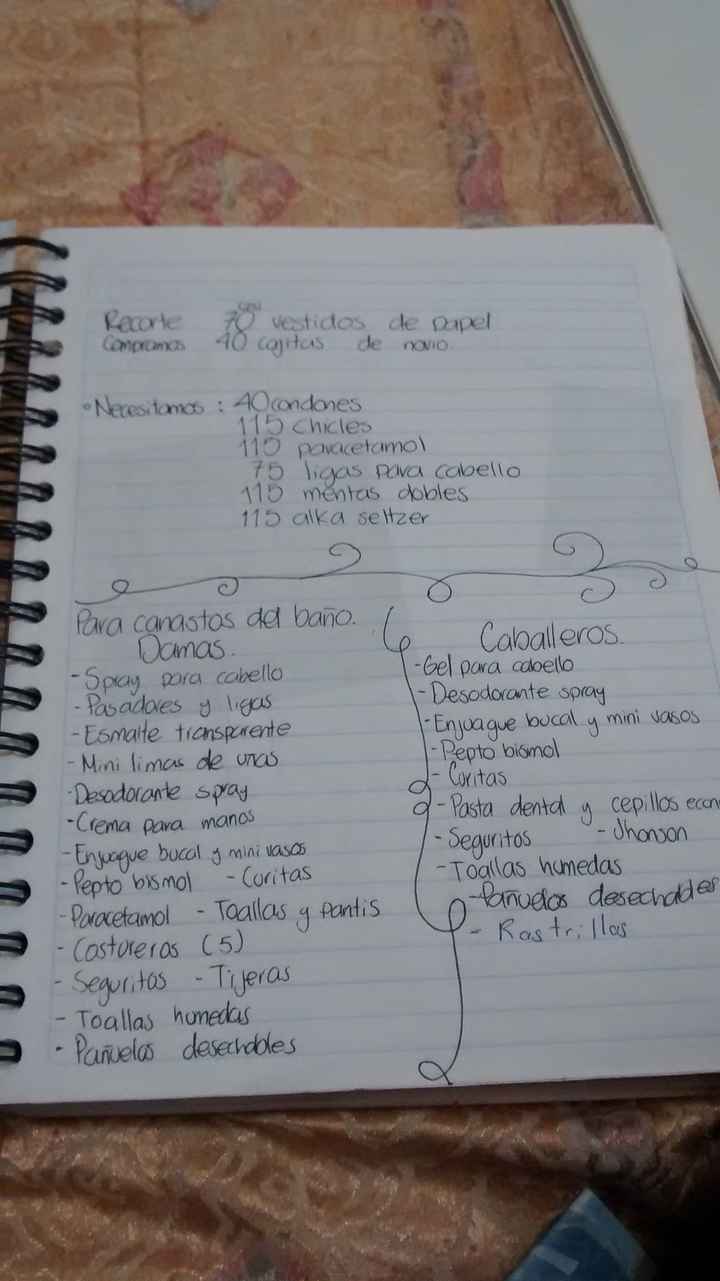 Recorte 70 vestidos de papel
Compramos 40 cajitas de novio.
°Necesitamos: 40 condones
115 chicles
115 paracetamol
75 ligas para cabello
115 mentas dobles
115 alka seltzer
Para canastos del baño.
Damas.
- Spray para cabello
- Pasadores y ligas
- Esmalte transparente
- Mini limas de uñas
- Desodorante spray
- Crema para manos
- Enjuague bucal y mini vasos
- Pepto bismol - Curitas
- Paracetamol - Toallas y pantis
- Costureros (5)
- Seguritos - Tijeras
- Toallas humedas
- Pañuelos desechables
Caballeros.
- Gel para cabello
- Desodorante spray
- Enjuague bucal y mini vasos
- Pepto bismol
- Curitas
- Pasta dental y cepillos econ
- Seguritos - Jhonson
- Toallas humedas
- Pañuelos desechables
- Rastrillos